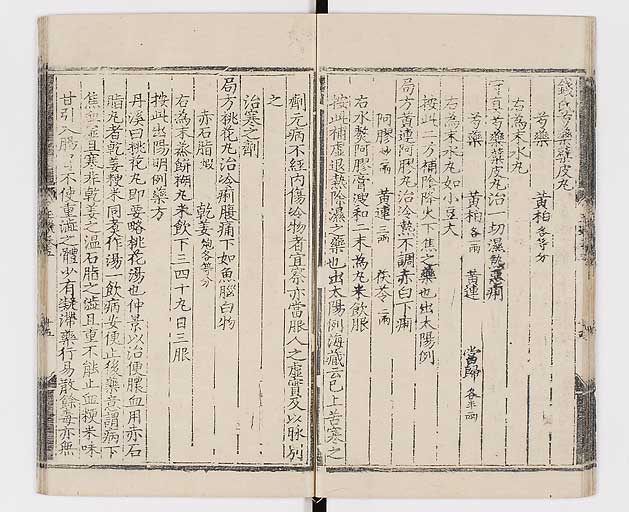 錢氏芍藥蘗皮丸
芍藥 黃柏各等分
右為末水丸
芍藥蘗皮丸治一切濕熱惡痢
芍藥 黃柏各一兩 黃連 當歸各半兩
右為末水丸如小豆大
按此二方補陰降火下焦之藥也出太陽例
局方黃連阿膠丸治冷熱不調赤白下痢
阿膠炒二兩 黃連三兩 茯苓二兩
右水熬阿膠膏溲和二末為丸米飲服
按此補虛退熱除濕之藥也出太陽例海藏云已上苦寒之
劑元病不經內傷冷物者宜察亦當服人之虛實及以脉別
之
治寒之劑
局方桃花丸治冷痢腹痛下如魚腦白物
赤石脂煅 乾姜炮各等分
右為末蒸餅糊丸米飲下三四十丸日三服
按此出陽明例藥方
丹溪曰桃花丸即要略桃花湯也仲景以治便膿血用赤石
脂丸者乾姜粳米同煮作湯一飲病安便止後藥意謂病下
焦血虛且寒非乾姜之溫石脂之澁且重不能止血粳米味
甘引入腸不使重澁之體少有凝滯藥行易散餘毒亦無